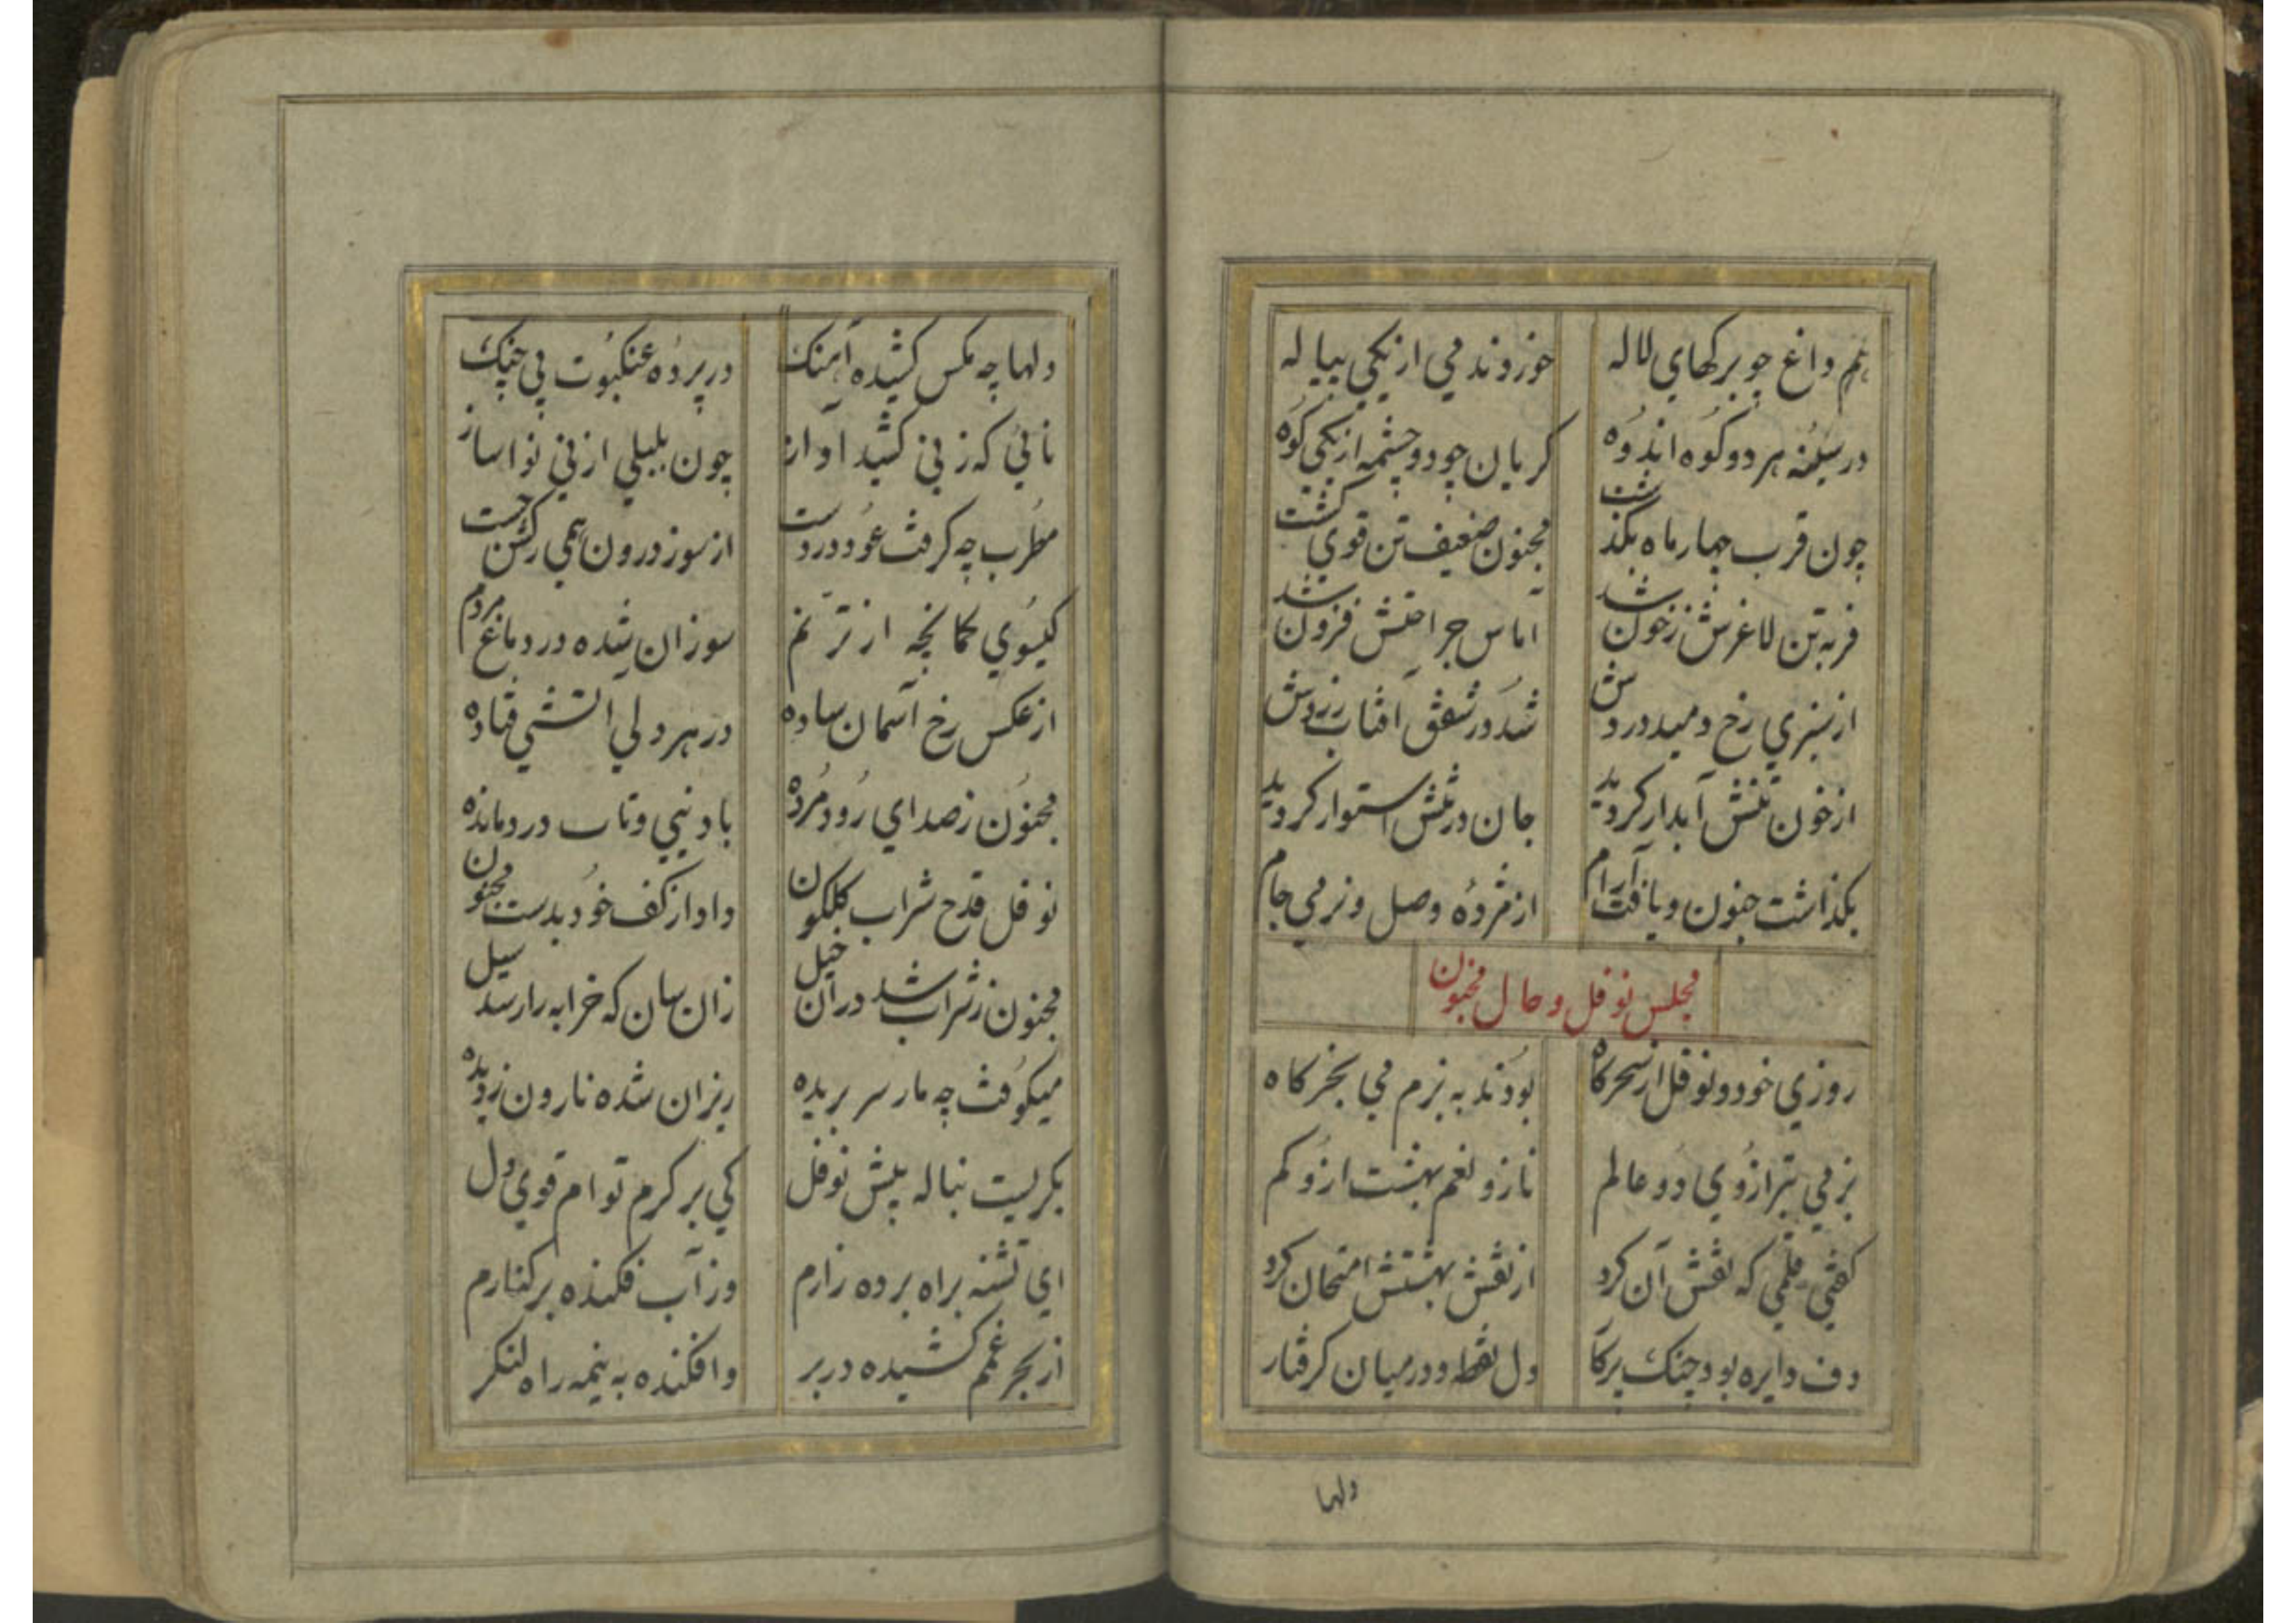 هم داغ چو برکهاي لاله خوردند مي از يکي پياله
در سينه هر دو کوه اندوه کريان چو دو چشمه از يکي کوه
چون قرب چهار ماه بکذشت مجنون ضعيف تن قوي کشت
فربه تن لاغرش ز خون شد آماس جراحتش فزون شد
از سبزي رخ دميد وردش شد در شفق آفتاب زردش
از خون تنش آبدار کرديد جان در تنش استوار کرديد
بکذاشت جنون و يافت آرام از مژده وصل وز مي جام
مجلس نوفل و حال مجنون
روزي خود و نوفل از سحرکاه بودند به بزم مي بخرکاه
بزمي بترازوي دو عالم ناز و نعم بهشت ازو کم
کفتي قلمي که نقش آن کرد از نقش بهشتش امتحان کرد
دف دايره بود چنک پرکار دل نقطه و در ميان کرفتار
دلها
دلها چه مکس کشيده آهنک در پرده عنکبوت ني چنک
نائي که ز ني کشيد آواز چون بلبلي از ني نوا ساز
مطرب چه کرفت عود در دست از سوز درون همي رکش جست
کيسوي کمانچه از ترنم سوزان شده در دماغ مردم
از عکس رخ آسمان ساده در هر دلي آتشي فتاده
مجنون ز صداي رود مرده باد ني وتاب در دمانده
نوفل قدح شراب کلکون داد از کف خود بدست مجنون
مجنون ز شراب شد در آن خيل زان سان که خرابه را رسد سيل
ميکوفت چه مار سر بريده ريزان شده نارون ز ديده
بکريست بناله پيش نوفل کي بر کرم توام قوي دل
اي تشنه براه برده زارم وز آب فکنده بر کنارم
از بحر غمم کشيده در بر وافکنده به نيمه راه لنکر